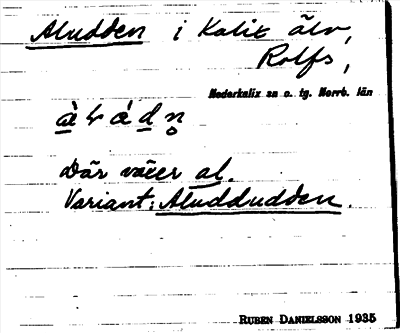 Aludden i Kalix älv,
Rolfs,
Nederkalix sn o. tg. Norrb. län
Där växer al.
Variant: Aluddudden.
RUBEN DANIELSSON 1935